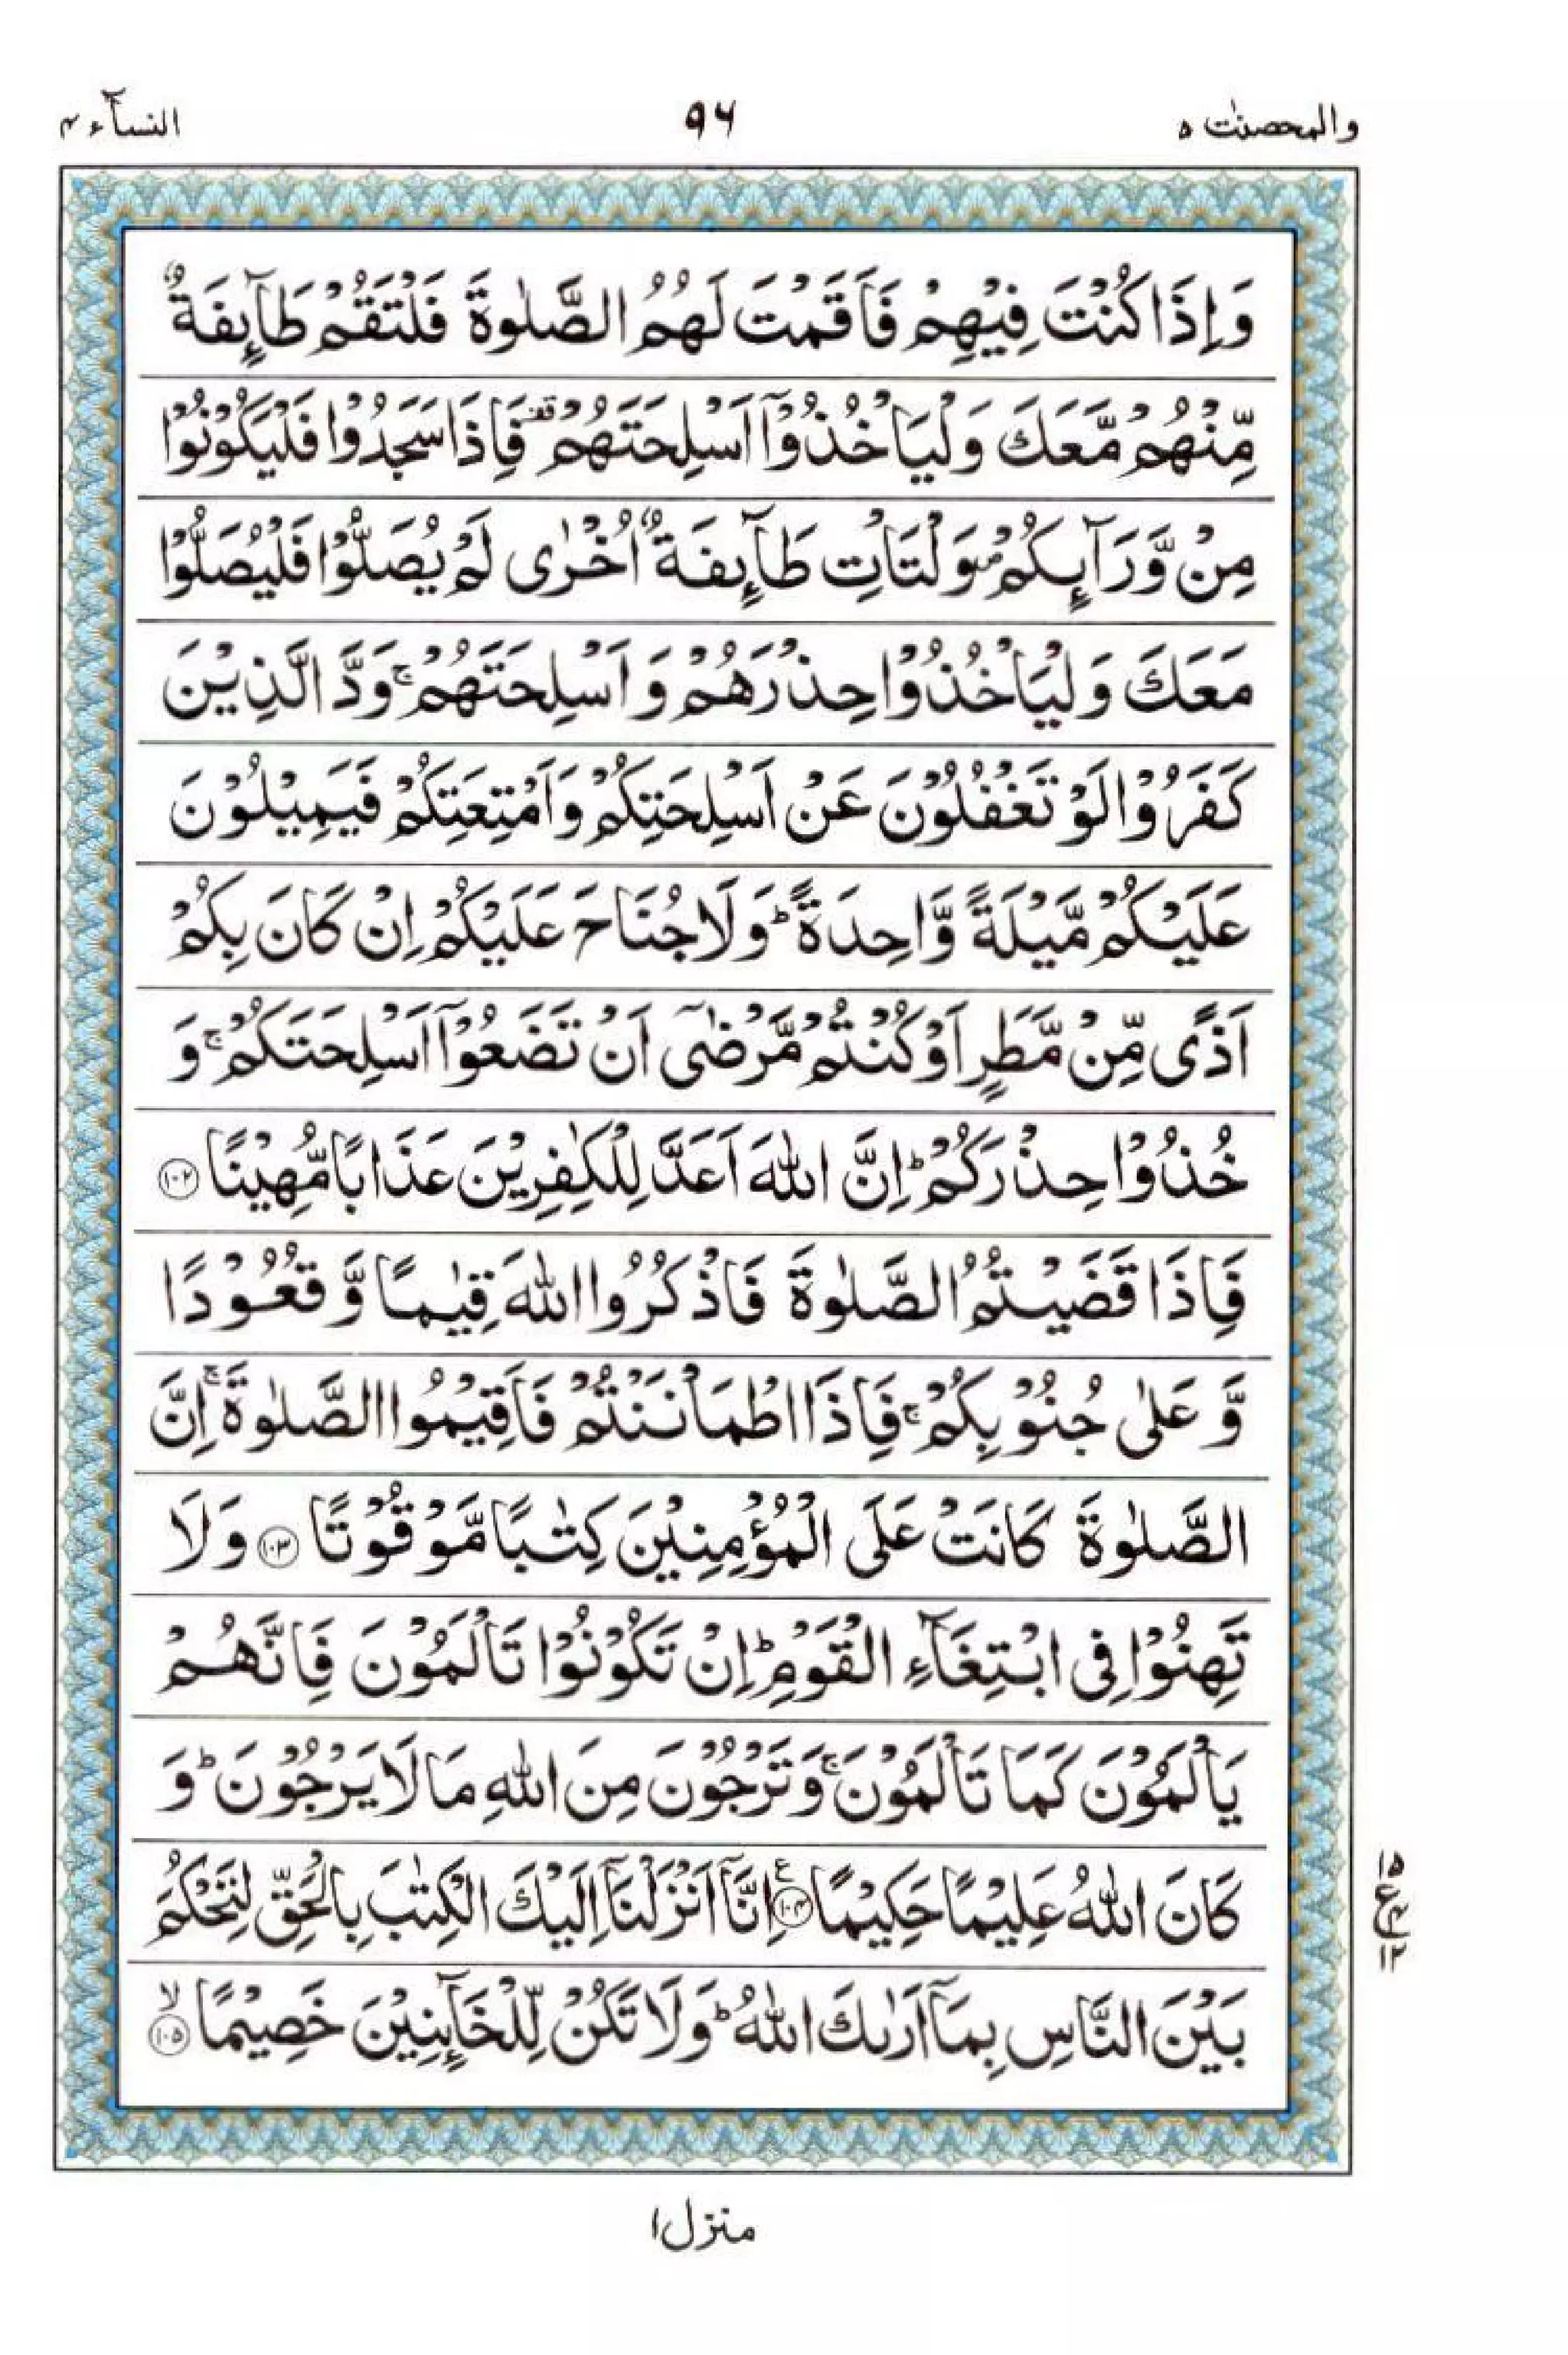 والمحصنٰت ٥
٩٦
النسآء ٤
وَاِذَا كُنْتَ فِيْهِمْ فَاَقَمْتَ لَهُمُ الصَّلٰوةَ فَلْتَقُمْ طَآىِٕفَةٌ
مِّنْهُمْ مَّعَكَ وَلْيَاْخُذُوْۤا اَسْلِحَتَهُمْ ۫ فَاِذَا سَجَدُوْا فَلْيَكُوْنُوْا
مِنْ وَّرَآىِٕكُمْ ۪ وَلْتَاْتِ طَآىِٕفَةٌ اُخْرٰى لَمْ يُصَلُّوْا فَلْيُصَلُّوْا
مَعَكَ وَلْيَاْخُذُوْا حِذْرَهُمْ وَ اَسْلِحَتَهُمْ ۚ وَدَّ الَّذِيْنَ
كَفَرُوْا لَوْ تَغْفُلُوْنَ عَنْ اَسْلِحَتِكُمْ وَاَمْتِعَتِكُمْ فَيَمِيْلُوْنَ
عَلَيْكُمْ مَّيْلَةً وَّاحِدَةً ؕ وَلَا جُنَاحَ عَلَيْكُمْ اِنْ كَانَ بِكُمْ
اَذًى مِّنْ مَّطَرٍ اَوْ كُنْتُمْ مَّرْضٰۤى اَنْ تَضَعُوْۤا اَسْلِحَتَكُمْ ۚ وَ
خُذُوْا حِذْرَكُمْ ؕ اِنَّ اللّٰهَ اَعَدَّ لِلْكٰفِرِيْنَ عَذَابًا مُّهِيْنًا ١٠٢
فَاِذَا قَضَيْتُمُ الصَّلٰوةَ فَاذْكُرُوا اللّٰهَ قِيٰمًا وَّ قُعُوْدًا
وَّ عَلٰى جُنُوْبِكُمْ ۚ فَاِذَا اطْمَاْنَنْتُمْ فَاَقِيْمُوا الصَّلٰوةَ ۚ اِنَّ
الصَّلٰوةَ كَانَتْ عَلَى الْمُؤْمِنِيْنَ كِتٰبًا مَّوْقُوْتًا ١٠٣ وَلَا
تَهِنُوْا فِى ابْتِغَآءِ الْقَوْمِ ؕ اِنْ تَكُوْنُوْا تَاْلَمُوْنَ فَاِنَّهُمْ
يَاْلَمُوْنَ كَمَا تَاْلَمُوْنَ ۚ وَتَرْجُوْنَ مِنَ اللّٰهِ مَا لَا يَرْجُوْنَ ؕ وَ
كَانَ اللّٰهُ عَلِيْمًا حَكِيْمًا ١٠٤ ع اِنَّاۤ اَنْزَلْنَاۤ اِلَيْكَ الْكِتٰبَ بِالْحَقِّ لِتَحْكُمَ
١٥
ع ٤
١٢
بَيْنَ النَّاسِ بِمَاۤ اَرٰىكَ اللّٰهُ ؕ وَلَا تَكُنْ لِّلْخَآىِٕنِيْنَ خَصِيْمًا ۙ ١٠٥
منزل ١